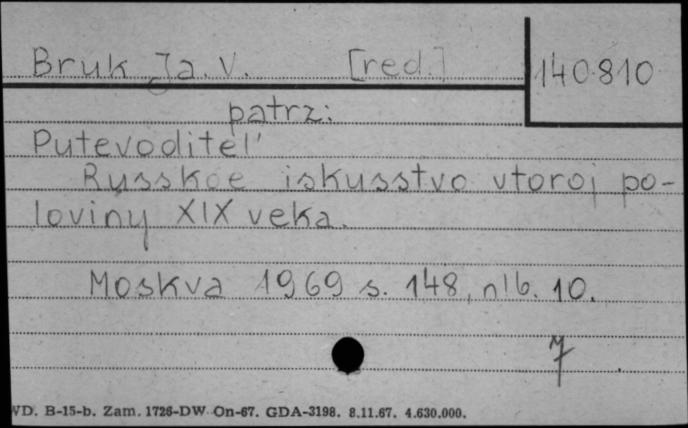 Bruk Ja. V. [red.]
140.810
patrz:
Putevoditel'
Russkoe iskusstvo vtoroj po-
loviny XIX veka.
Moskva 1969 s. 148, nlb. 10.
7
WD. B-15-b. Zam. 1726-DW On-67. GDA-3198. 8.11.67. 4.630.000.